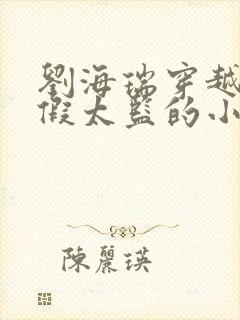 劉海瑞穿越
假太監的小
陳麗瑛